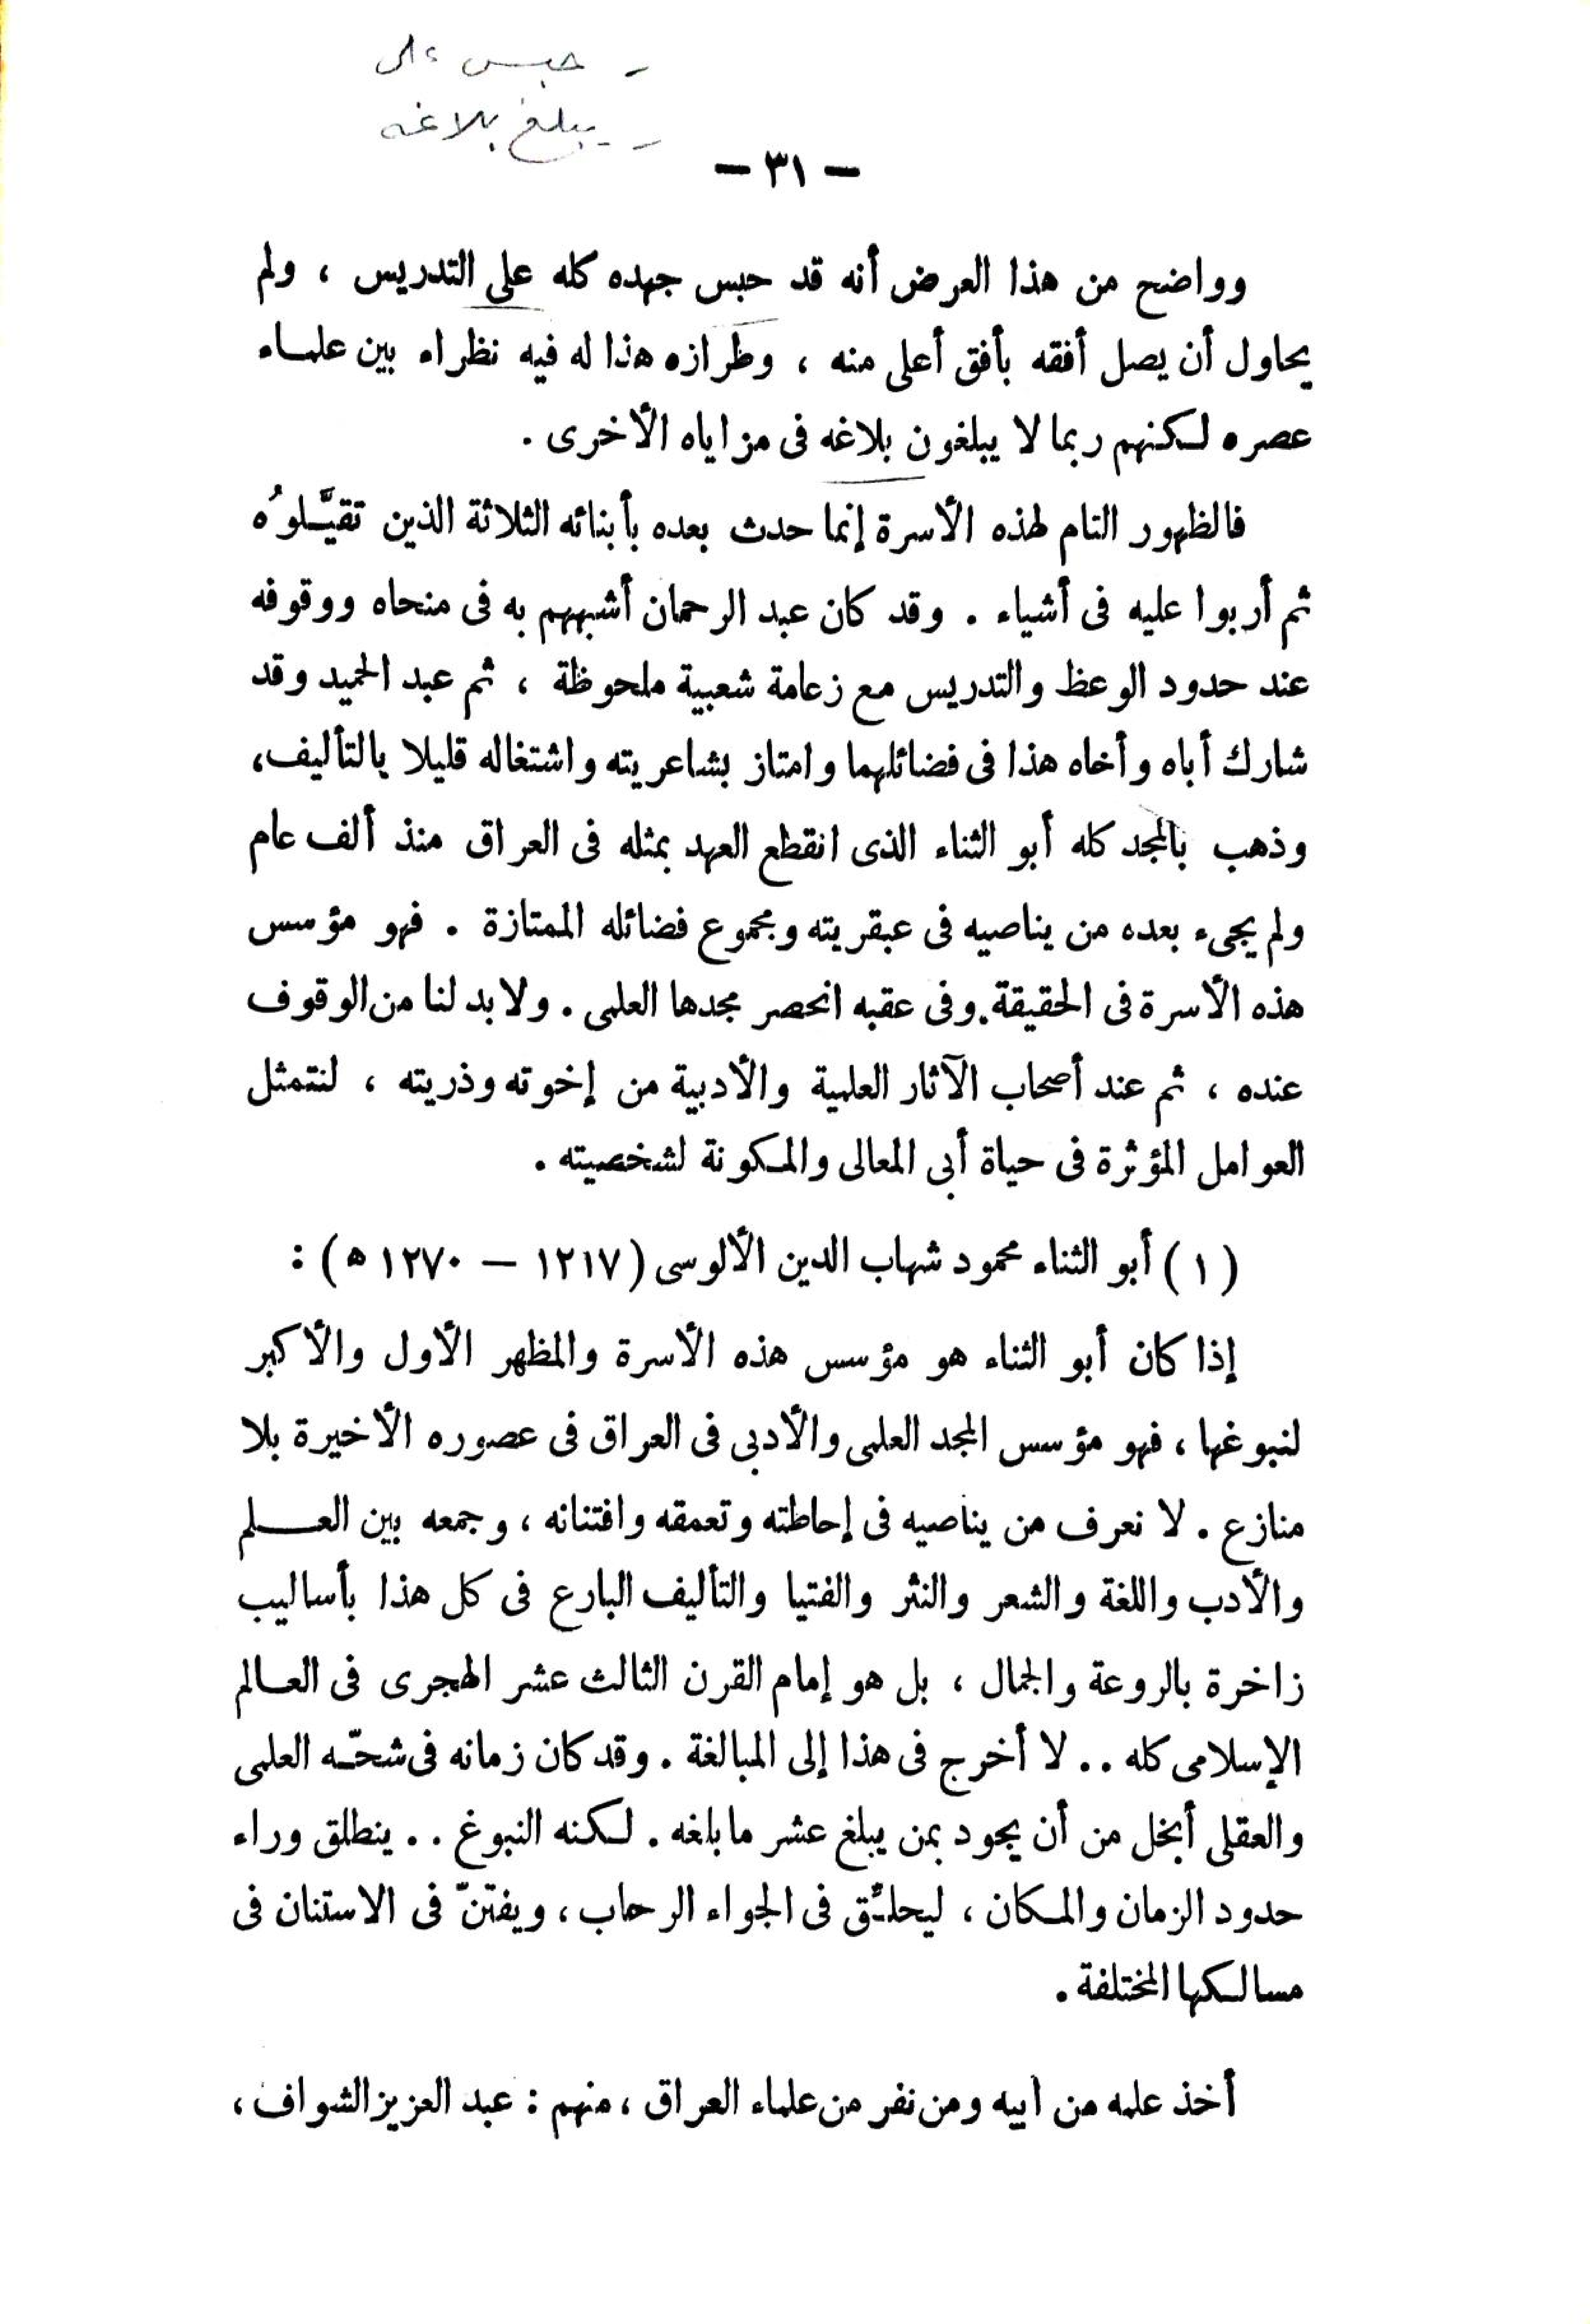 - حبس على
- يبلغ بلاغه
— ٣١ —
وواضح من هذا العرض أنه قد حبس جهده كله على التدريس ، ولم
يحاول أن يصل أفقه بأفق أعلى منه ، وطرازه هذا له فيه نظراء بين علماء
عصره لكنهم ربما لا يبلغون بلاغه فى مزاياه الأخرى .
فالظهور التام لهذه الأسرة إنما حدث بعده بأبنائه الثلاثة الذين تقيَّلوُه
ثم أربوا عليه فى أشياء . وقد كان عبد الرحمان أشبههم به فى منحاه ووقوفه
عند حدود الوعظ والتدريس مع زعامة شعبية ملحوظة ، ثم عبد الحميد وقد
شارك أباه وأخاه هذا فى فضائلهما وامتاز بشاعريته واشتغاله قليلا بالتأليف،
وذهب بالمجد كله أبو الثناء الذى انقطع العهد بمثله فى العراق منذ ألف عام
ولم يجىء بعده من يناصيه فى عبقريته ومجموع فضائله الممتازة . فهو مؤسس
هذه الأسرة فى الحقيقة.وفى عقبه انحصر مجدها العلمى . ولا بد لنا من الوقوف
عنده ، ثم عند أصحاب الآثار العلمية والأدبية من إخوته وذريته ، لنتمثل
العوامل المؤثرة فى حياة أبى المعالى والمكونة لشخصيته .
( ١ ) أبو الثناء محمود شهاب الدين الألوسى ( ١٢١٧ — ١٢٧٠ ه ) :
إذا كان أبو الثناء هو مؤسس هذه الأسرة والمظهر الأول والأكبر
لنبوغها ، فهو مؤسس المجد العلمى والأدبى فى العراق فى عصوره الأخيرة بلا
منازع . لا نعرف من يناصيه فى إحاطته وتعمقه وافتنانه ، وجمعه بين العلم
والأدب واللغة والشعر والنثر والفتيا والتأليف البارع فى كل هذا بأساليب
زاخرة بالروعة والجمال ، بل هو إمام القرن الثالث عشر الهجرى فى العالم
الإسلامى كله .. لا أخرج فى هذا إلى المبالغة . وقد كان زمانه فى شحّه العلمى
والعقلى أبخل من أن يجود بمن يبلغ عشر ما بلغه . لكنه النبوغ .. ينطلق وراء
حدود الزمان والمكان ، ليحلِّق فى الجواء الرحاب ، ويفتنّ فى الاستنان فى
مسالكها المختلفة .
أخذ علمه من أبيه ومن نفر من علماء العراق ، منهم : عبد العزيز الشواف ،